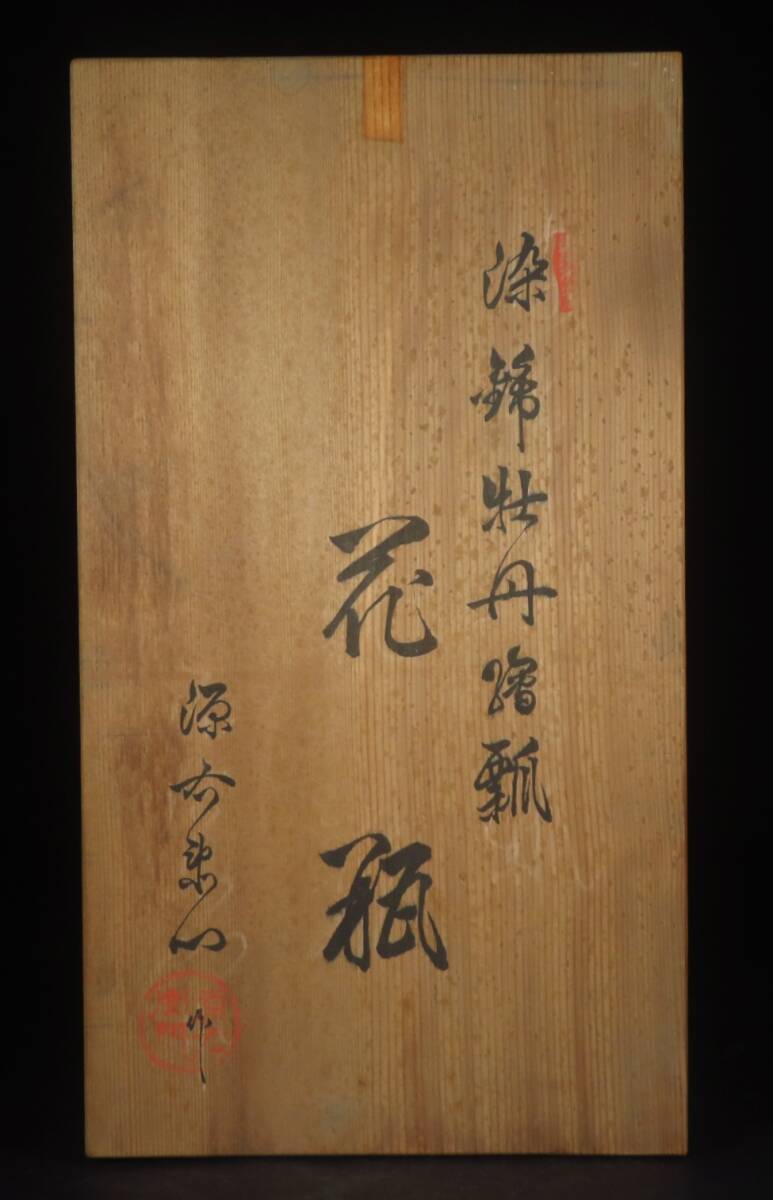 染錦牡丹繪瓢
花瓶
源右衛門
作